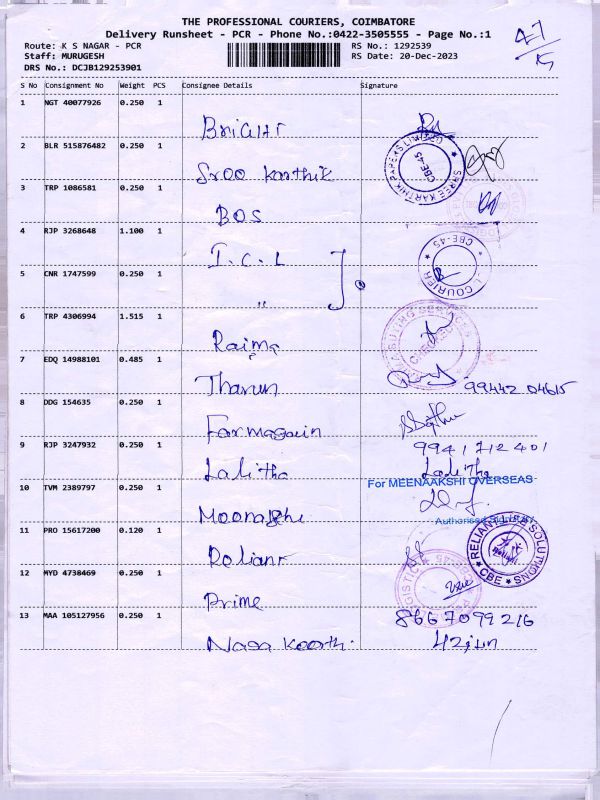 THE PROFESSIONAL COURIERS, COIMBATORE
Delivery Runsheet - PCR - Phone No.:0422-3505555 - Page No.:1
Route: K S NAGAR - PCR
RS No.: 1292539
Staff: MURUGESH
RS Date: 20-Dec-2023
DRS No.: DCJB129253901
47/15
S No Consignment No Weight PCS Consignee Details Signature
1 NGT 40077926 0.250 1
Bright
2 BLR 515876482 0.250 1
Sroo Karthik
SHREE KARTHIK PAPERS LIMITED
CBE-45
3 TRP 1086581 0.250 1
BOS
4 RJP 3268648 1.100 1
I.C.L
CBE-45
COURIER
5 CNR 1747599 0.250 1
"
6 TRP 4306994 1.515 1
Raima
7 EDQ 14988101 0.485 1
Tharun
99442 04615
8 DDG 154635 0.250 1
Farmagain
9 RJP 3247932 0.250 1
9941712401
Lalitha
Lalitha
10 TVM 2389797 0.250 1
For MEENAAKSHI OVERSEAS
Authorised
11 PRO 15617200 0.120 1
Roliant
RELIANT LIFT SOLUTIONS
CBE
12 MYD 4738469 0.250 1
Prime
13 MAA 105127956 0.250 1
8667099216
Naga Koorthi